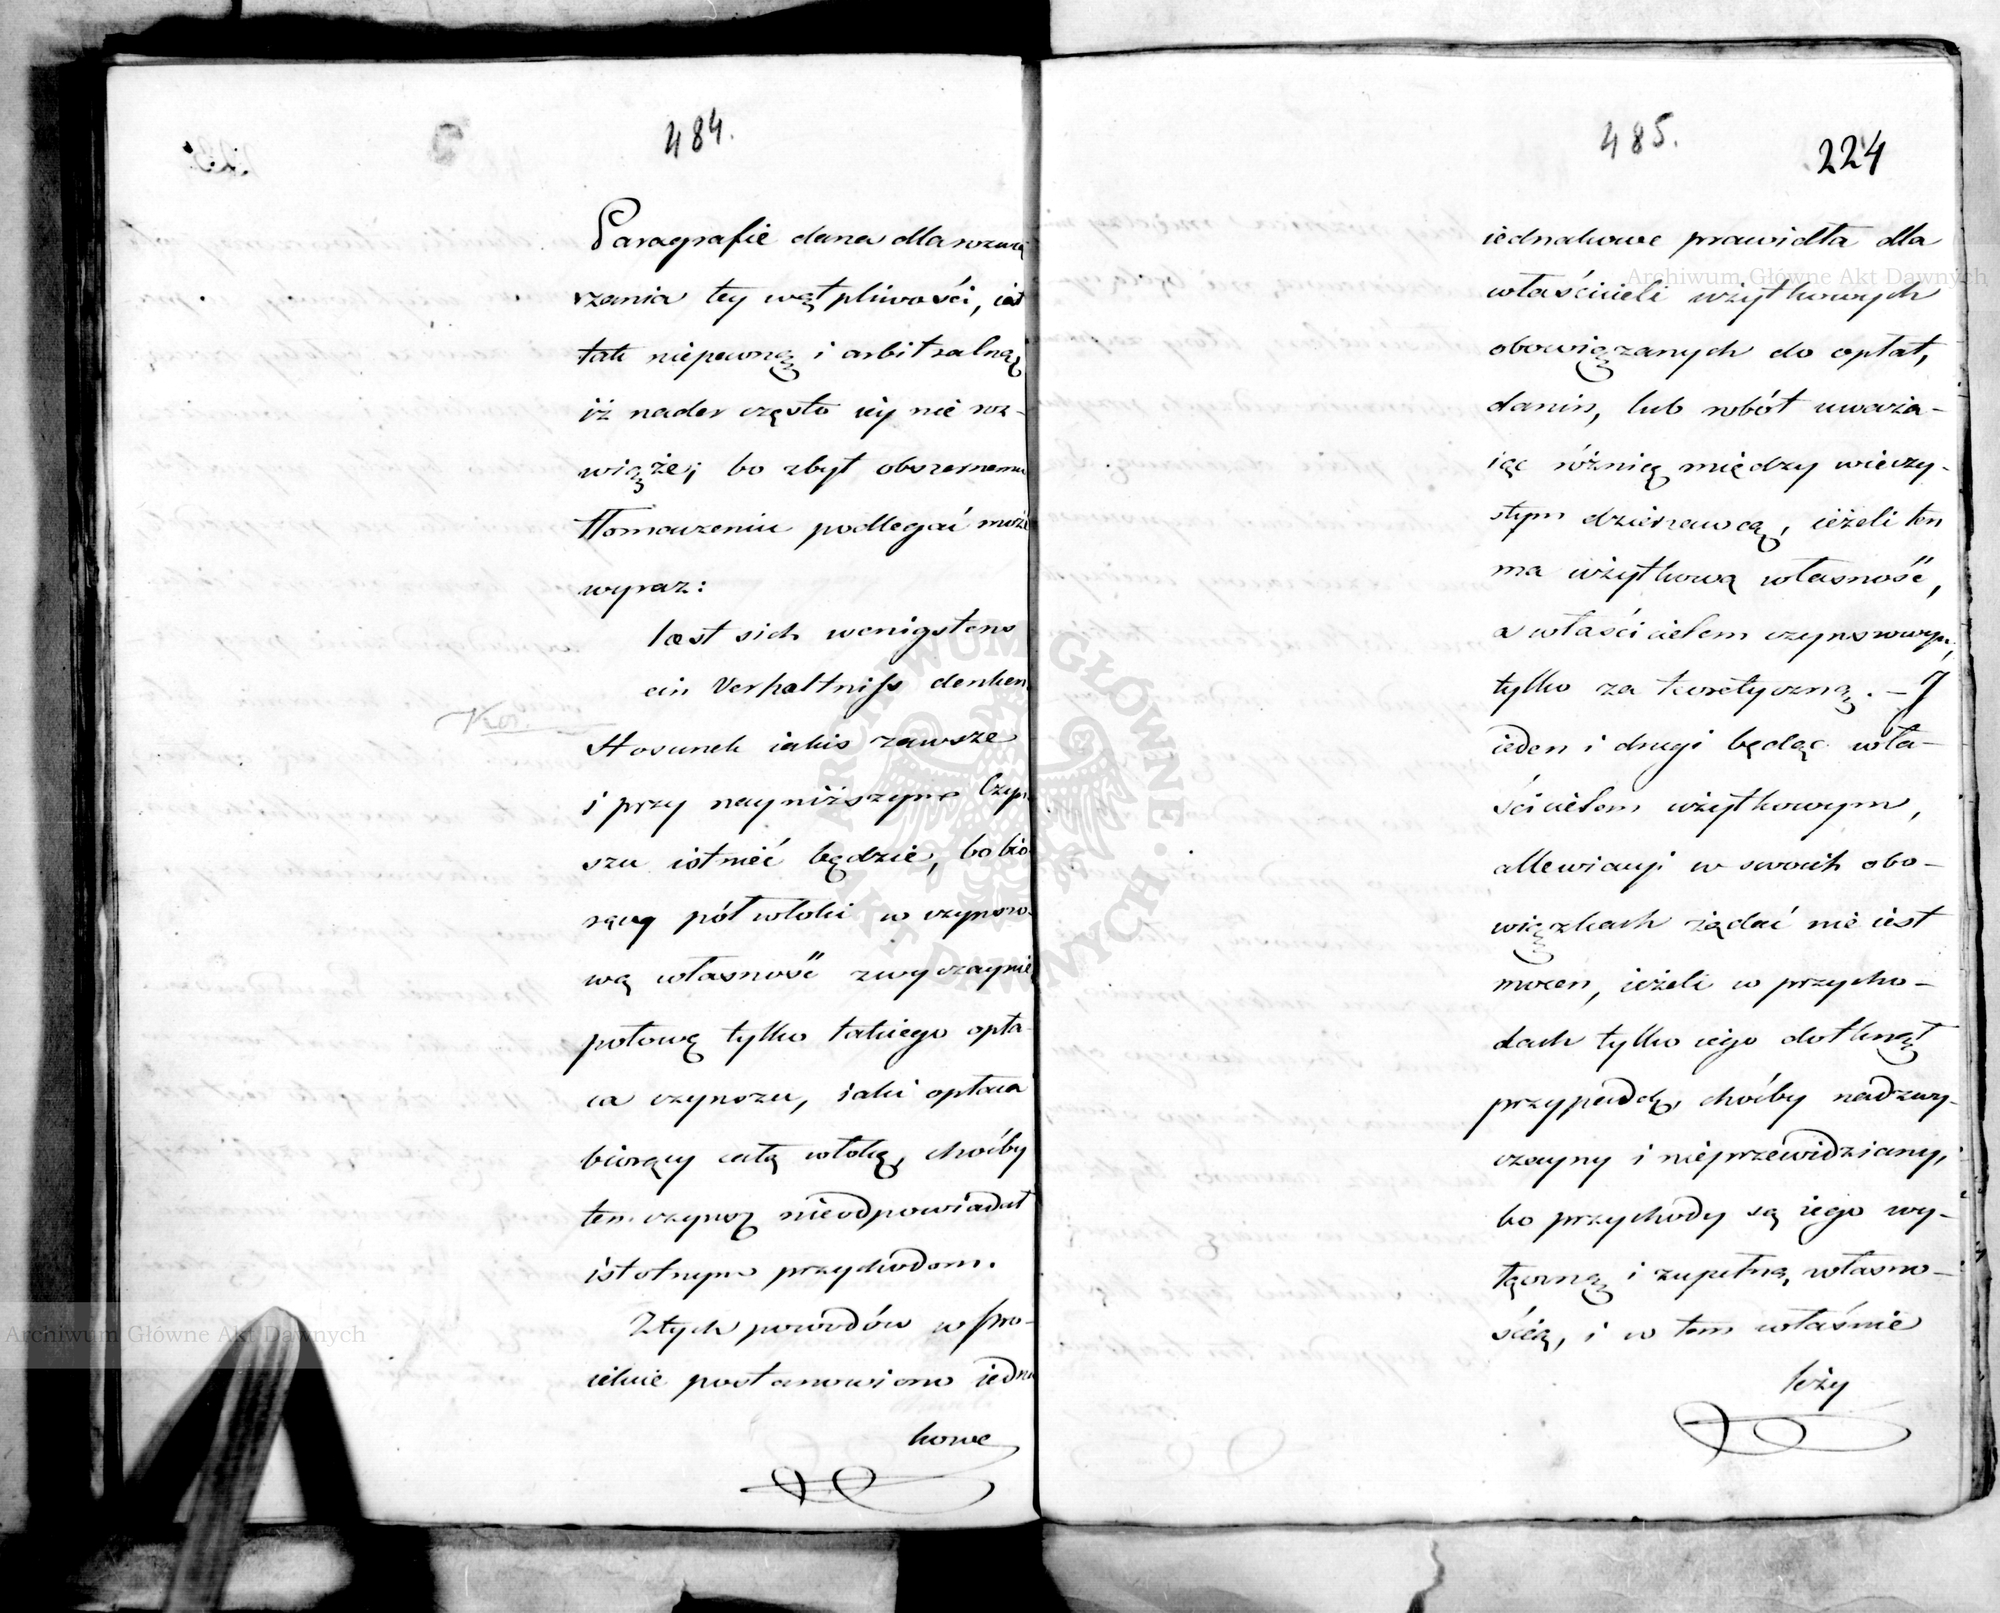 484.
Paragrafie dana dla rozwią
rzania tey wątpliwości, iest
tak niepewną i arbitralną
iż nader często iey nie roz-
wiąże; bo zbyt obszernemu
tłomaczeniu podlegać może
wyraz:
læst sich wenigstens
ein Verhaltniss denken
Kor.
Stosunek iakis zawsze
i przy nayniższym Czyn-
szu istnieć będzie, bo bio-
rący pół włoki w czynszo-
wą własność zwyczaynie
połowę tylko takiego opła-
ca czynszu, iaki opłaca
biorący całą włokę, choćby
ten czynsz nieodpowiadał
istotnym przychodom.
Z tych powodów w pro-
iekcie postanowiono iedna
kowe
485.
224
iednakowe prawidła dla
właścicieli użytkowych
obowiązanych do opłat,
danin, lub robót uważa-
iąc różnicę między wieczy-
stym dzierzawcą, ieżeli ten
ma użytkową własność,
a właścicielem czynszowym,
tylko za teoretyczną. – I
ieden i drugi będąc wła-
ścicielem użytkowym,
allewiacyi w swoich obo-
wiązkach żądać nie iest
mocen, ieżeli w przycho-
dach tylko iego dotknął
przypadek, choćby nadzwy-
czayny i nieprzewidziany,
bo przychody są iego wy-
łączną i zupełną własno-
ścią, i w tem właśnie
leży
Archiwum Główne Akt Dawnych
Archiwum Główne Akt Dawnych
ARCHIWUM GŁÓWNE AKT DAWNYCH